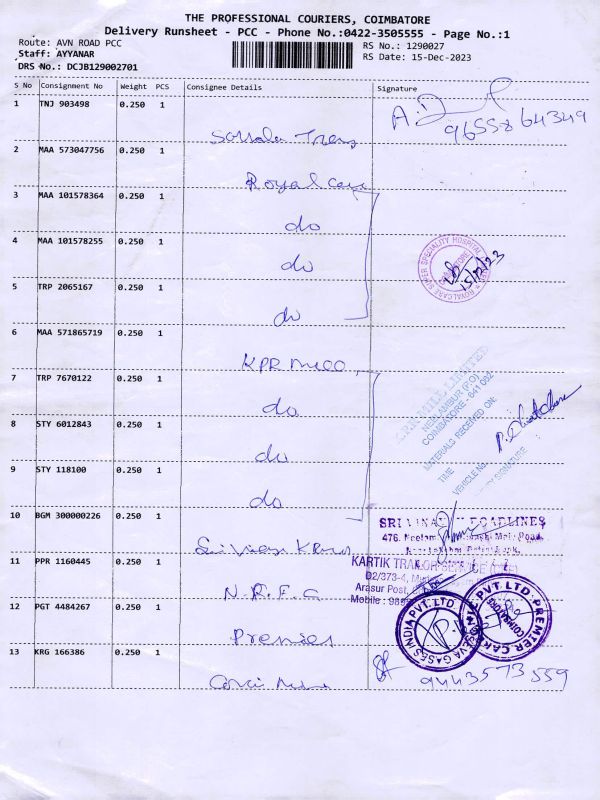 THE PROFESSIONAL COURIERS, COIMBATORE
Delivery Runsheet - PCC - Phone No.:0422-3505555 - Page No.:1
Route: AVN ROAD PCC
RS No.: 1290027
Staff: AYYANAR
RS Date: 15-Dec-2023
DRS No.: DCJB129002701
S No Consignment No Weight PCS Consignee Details Signature
1 TNJ 903498 0.250 1
96558 64349
2 MAA 573047756 0.250 1
Royal Care
3 MAA 101578364 0.250 1
do
4 MAA 101578255 0.250 1
do
ROYALCARE SUPER SPECIALITY HOSPITAL
15/12/23
5 TRP 2065167 0.250 1
do
6 MAA 571865719 0.250 1
KPR Mill
7 TRP 7670122 0.250 1
do
K.P.R. MILL LIMITED
NEELAMBUR (P.O)
COIMBATORE - 641 062
MATERIALS RECEIVED ON:
TIME
VEHICLE No.
SIGNATURE
8 STY 6012843 0.250 1
do
9 STY 118100 0.250 1
do
10 BGM 300000226 0.250 1
SRI ROADLINES
476, Neelam Road,
11 PPR 1160445 0.250 1
KARTIK TRAILOR SERVICE
D2/373-4,
Arasur Post,
Mobile :
12 PGT 4484267 0.250 1
Premier
GASES INDIA PVT. LTD.
PVT. LTD. PREMIER
COIMBATORE
13 KRG 166386 0.250 1
9443573 559